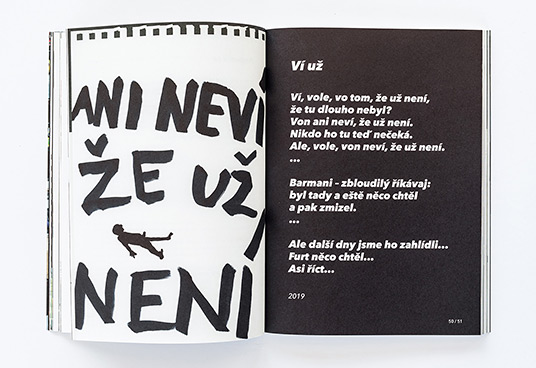 ANI NEVÍ
ŽE UŽ
NENÍ
Ví už
Ví, vole, vo tom, že už není,
že tu dlouho nebyl?
Von ani neví, že už není.
Nikdo ho tu teď nečeká.
Ale, vole, von neví, že už není.
...
Barmani – zbloudilý říkávaj:
byl tady a eště něco chtěl
a pak zmizel.
...
Ale další dny jsme ho zahlídli...
Furt něco chtěl...
Asi říct...
2019
50 / 51